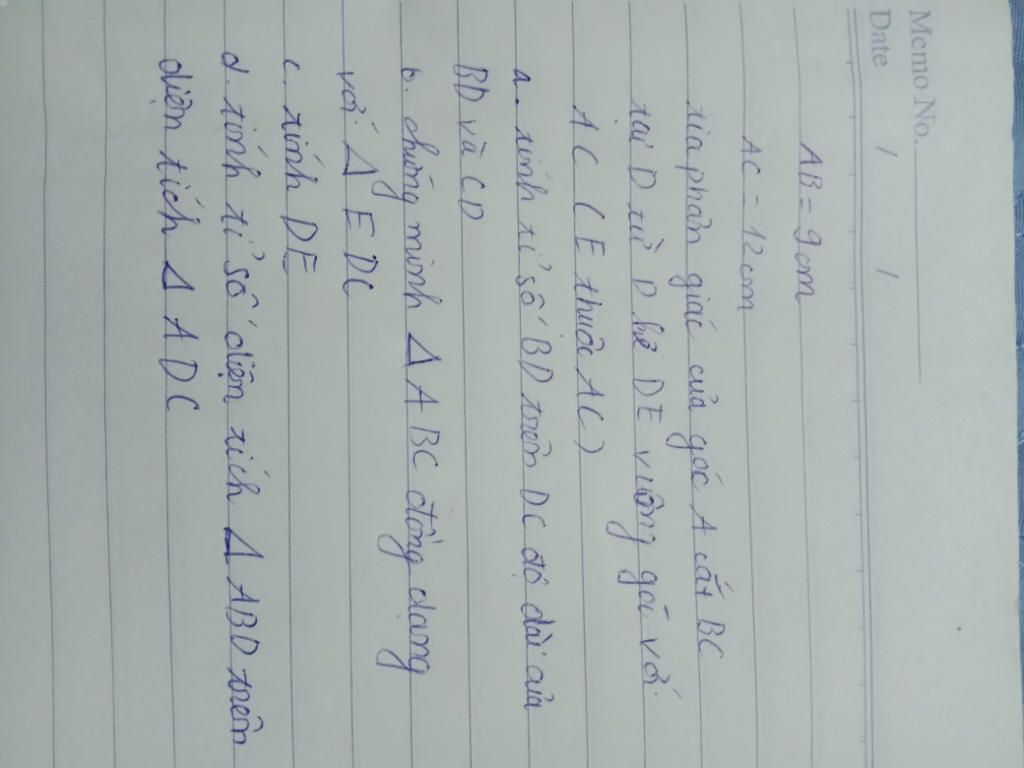 Memo No.
Date / /
AB = 9 cm
AC = 12 cm
tia phân giác của góc A cắt BC
tại D từ D kẻ DE vuông góc với
AC ( E thuộc AC )
a. tính tỉ số BD trên DC độ dài của
BD và CD
b. chứng minh Δ ABC đồng dạng
với Δ EDC
c. tính DE
d. tính tỉ số diện tích Δ ABD trên
diện tích Δ ADC